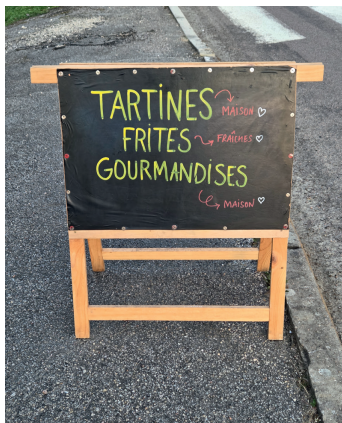 TARTINES MAISON ♡
FRITES FRAÎCHES ♡
GOURMANDISES
MAISON ♡